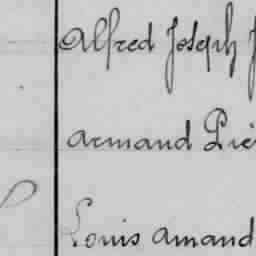 Alfred Joseph J
Armand Pie
Louis Amand